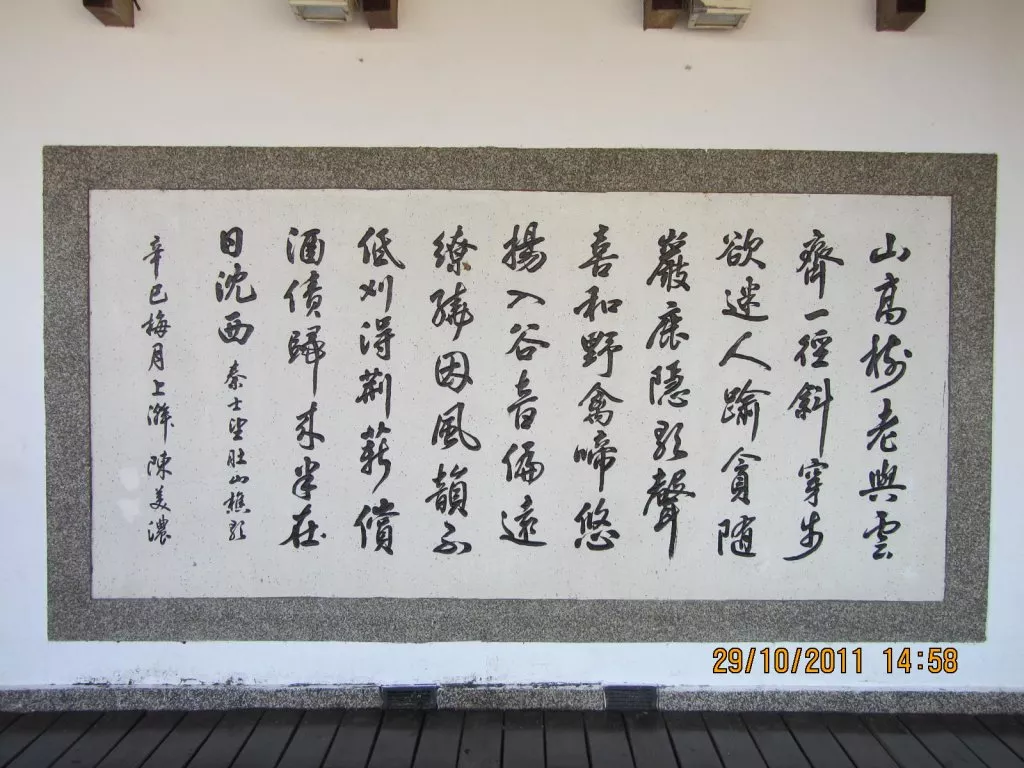 山高樹老與雲
齊一徑斜穿步
欲迷人踰貪隨
巖鹿隱歌聲
喜和野禽啼悠
揚入谷音偏遠
繚繞因風韻不
低刈得荊薪償
酒債歸來半在
日沈西 秦士望肚山樵歌
辛巳梅月上澣 陳美濃
29/10/2011 14:58